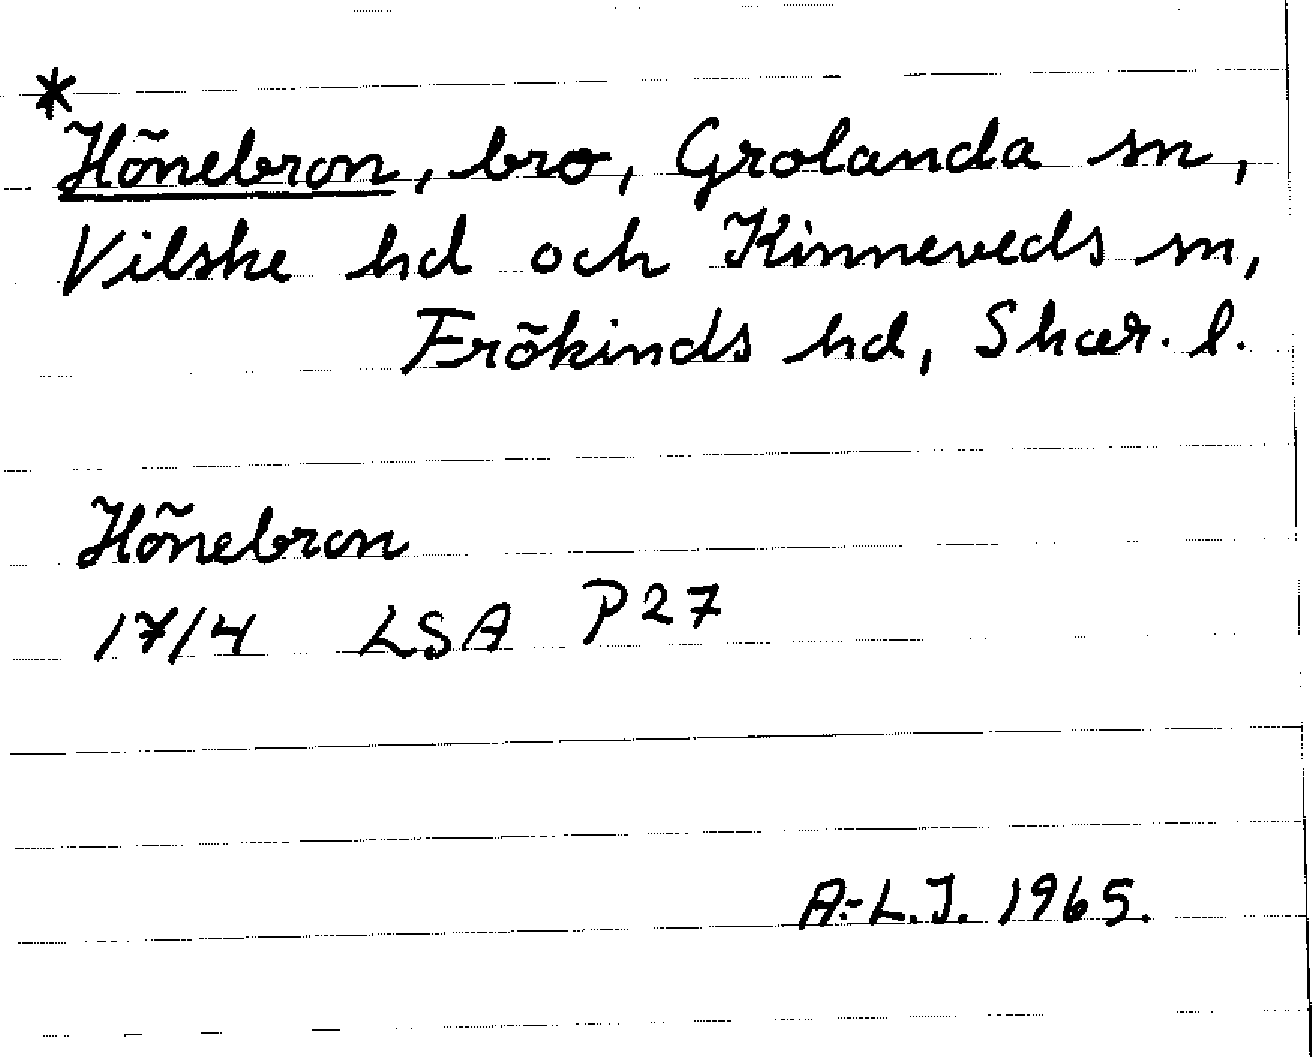 *
Hönebron, bro, Grolanda sn,
Vilske hd och Kinneveds sn,
Frökinds hd, Skar. l.
Hönebron
17/4 LSA P27
A.-L.J. 1965.